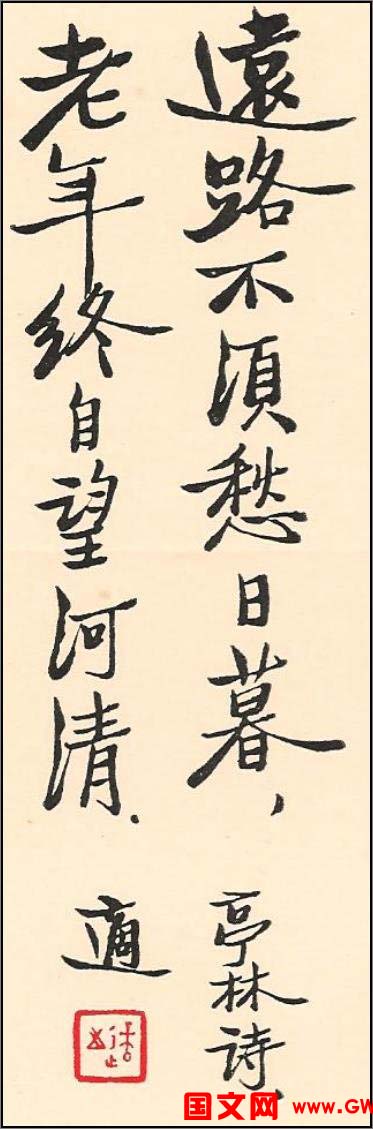 遠路不須愁日暮，
老年終自望河清．
亭林诗、
適
国文网 www.GW